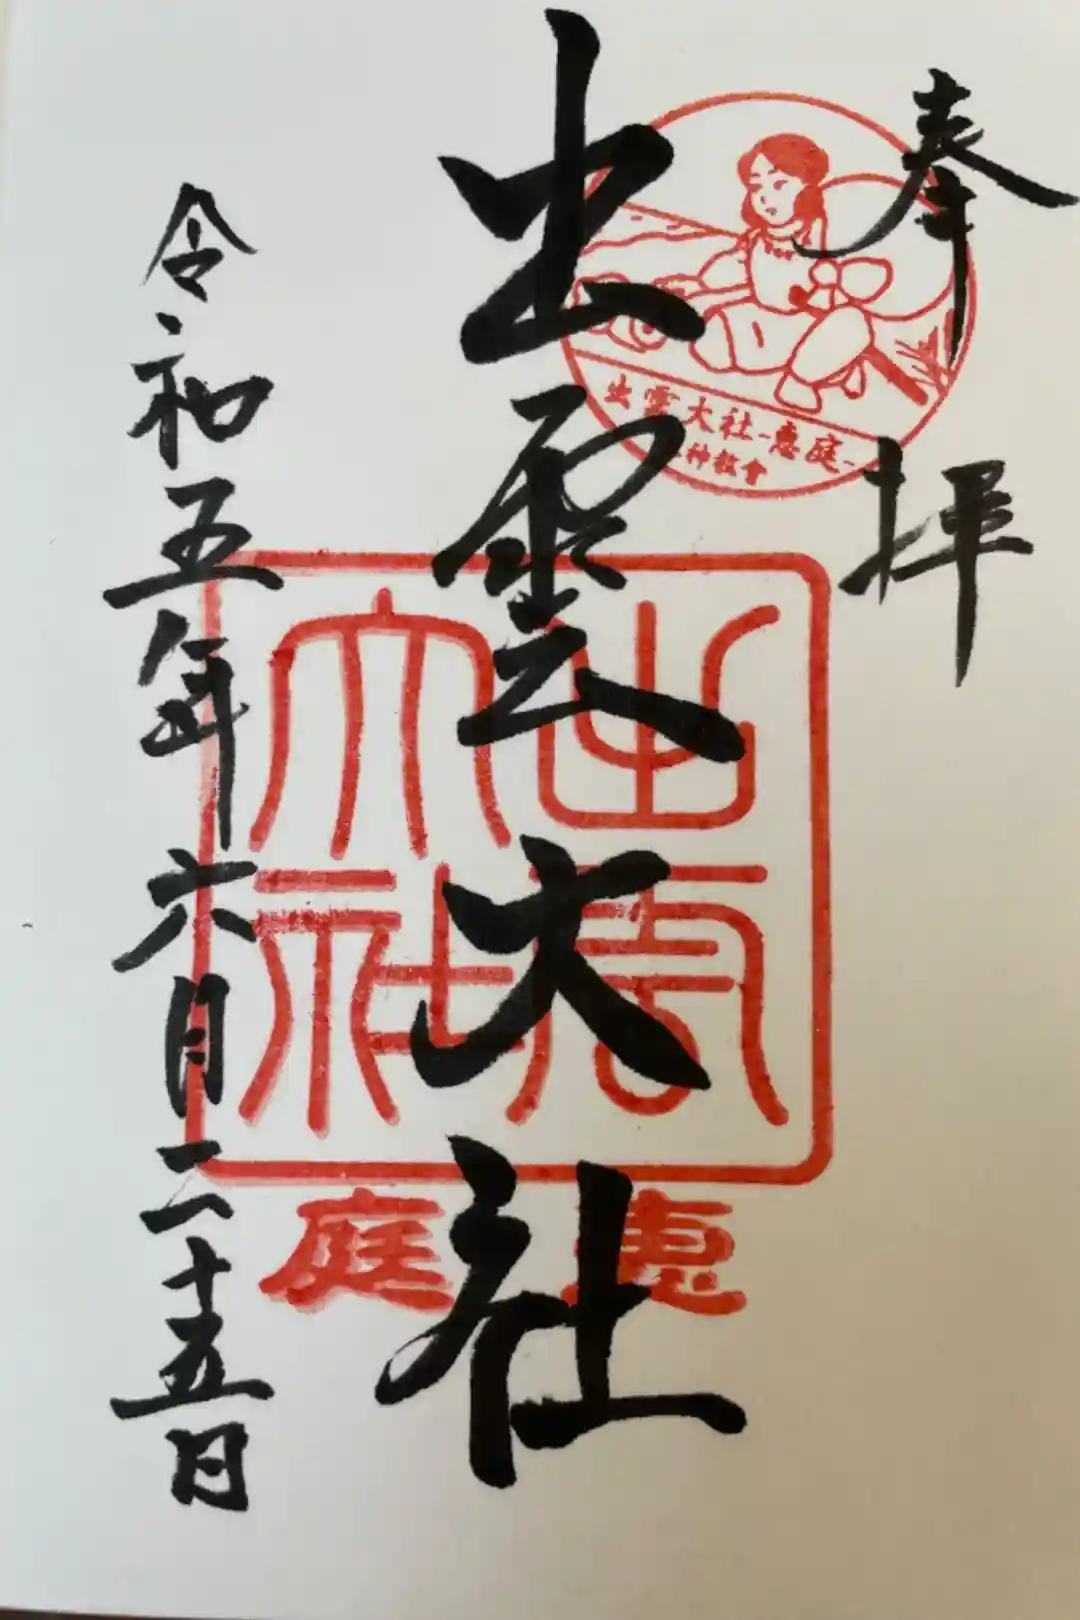 奉拝
出雲大社-恵庭-
神教會
出雲大社
出雲大社
恵庭
令和五年六月二十五日